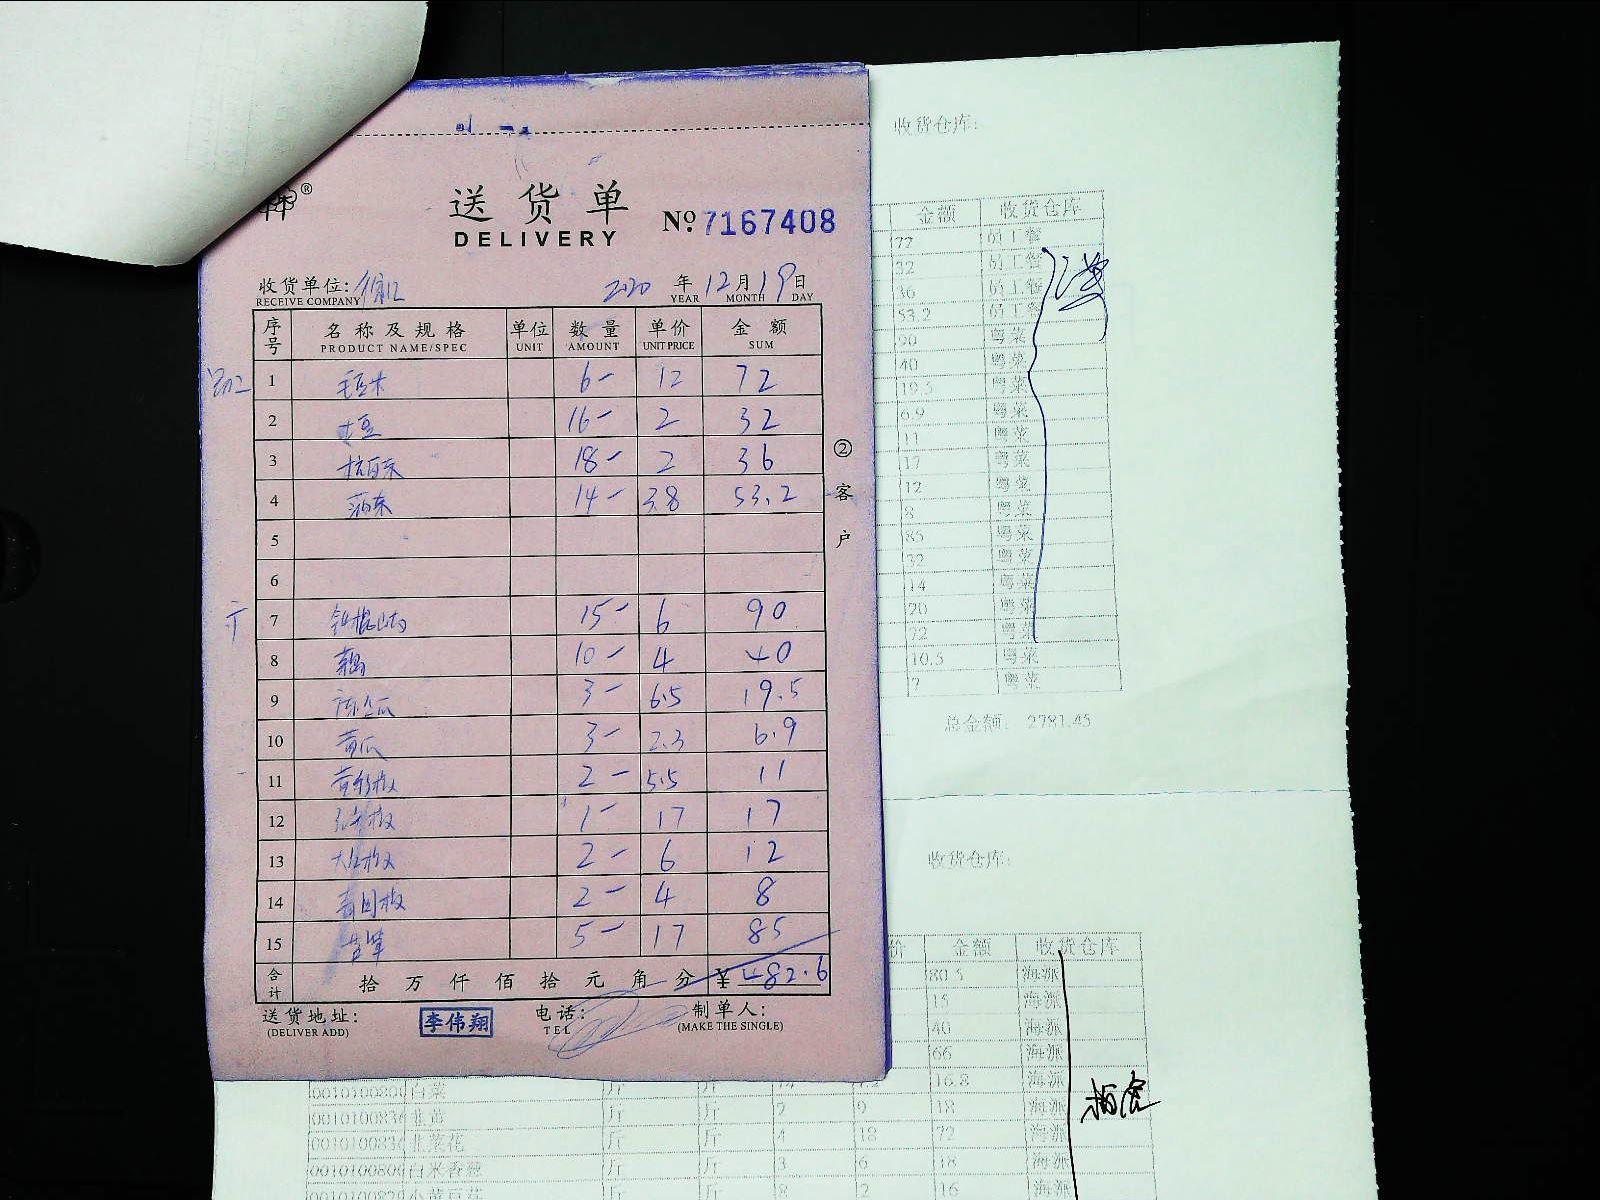 收货仓库:
®
送货单
DELIVERY
№ 7167408
收货单位:
RECEIVE COMPANY
2020 年 12 月 19 日
YEAR MONTH DAY
序号 名称及规格 单位 数量 单价 金额
PRODUCT NAME/SPEC UNIT AMOUNT UNIT PRICE SUM
1 毛豆米 6- 12 72
2 土豆 16- 2 32
3 杭白菜 18- 2 36
4 菠菜 14- 3.8 53.2
5
6
7 铁棍山药 15- 6 90
8 藕 10- 4 40
9 3- 6.5 19.5
10 黄瓜 3- 2.3 6.9
11 黄彩椒 2- 5.5 11
12 1- 17 17
13 大红椒 2- 6 12
14 青圆椒 2- 4 8
15 5- 17 85
合计 拾万仟佰拾元角分 ¥ 482.6
送货地址:
(DELIVER ADD)
李伟翔
电话:
TEL
制单人:
(MAKE THE SINGLE)
②客户
金额 收货仓库
72 员工餐
32 员工餐
36 员工餐
53.2 员工餐
90 粤菜
40 粤菜
19.5 粤菜
6.9 粤菜
11 粤菜
17 粤菜
12 粤菜
8 粤菜
85 粤菜
32 粤菜
14 粤菜
20 粤菜
72 粤菜
10.5 粤菜
7 粤菜
总金额: 2781.45
收货仓库:
价 金额 收货仓库
80.5 海派
15 海派
40 海派
66 海派
16.8 海派
白菜 斤 斤
斤 斤 2 9 18 海派
韭菜花 斤 斤 4 18 72 海派
白米香葱 斤 斤 3 6 18 海派
斤 斤 8 2 16 海派